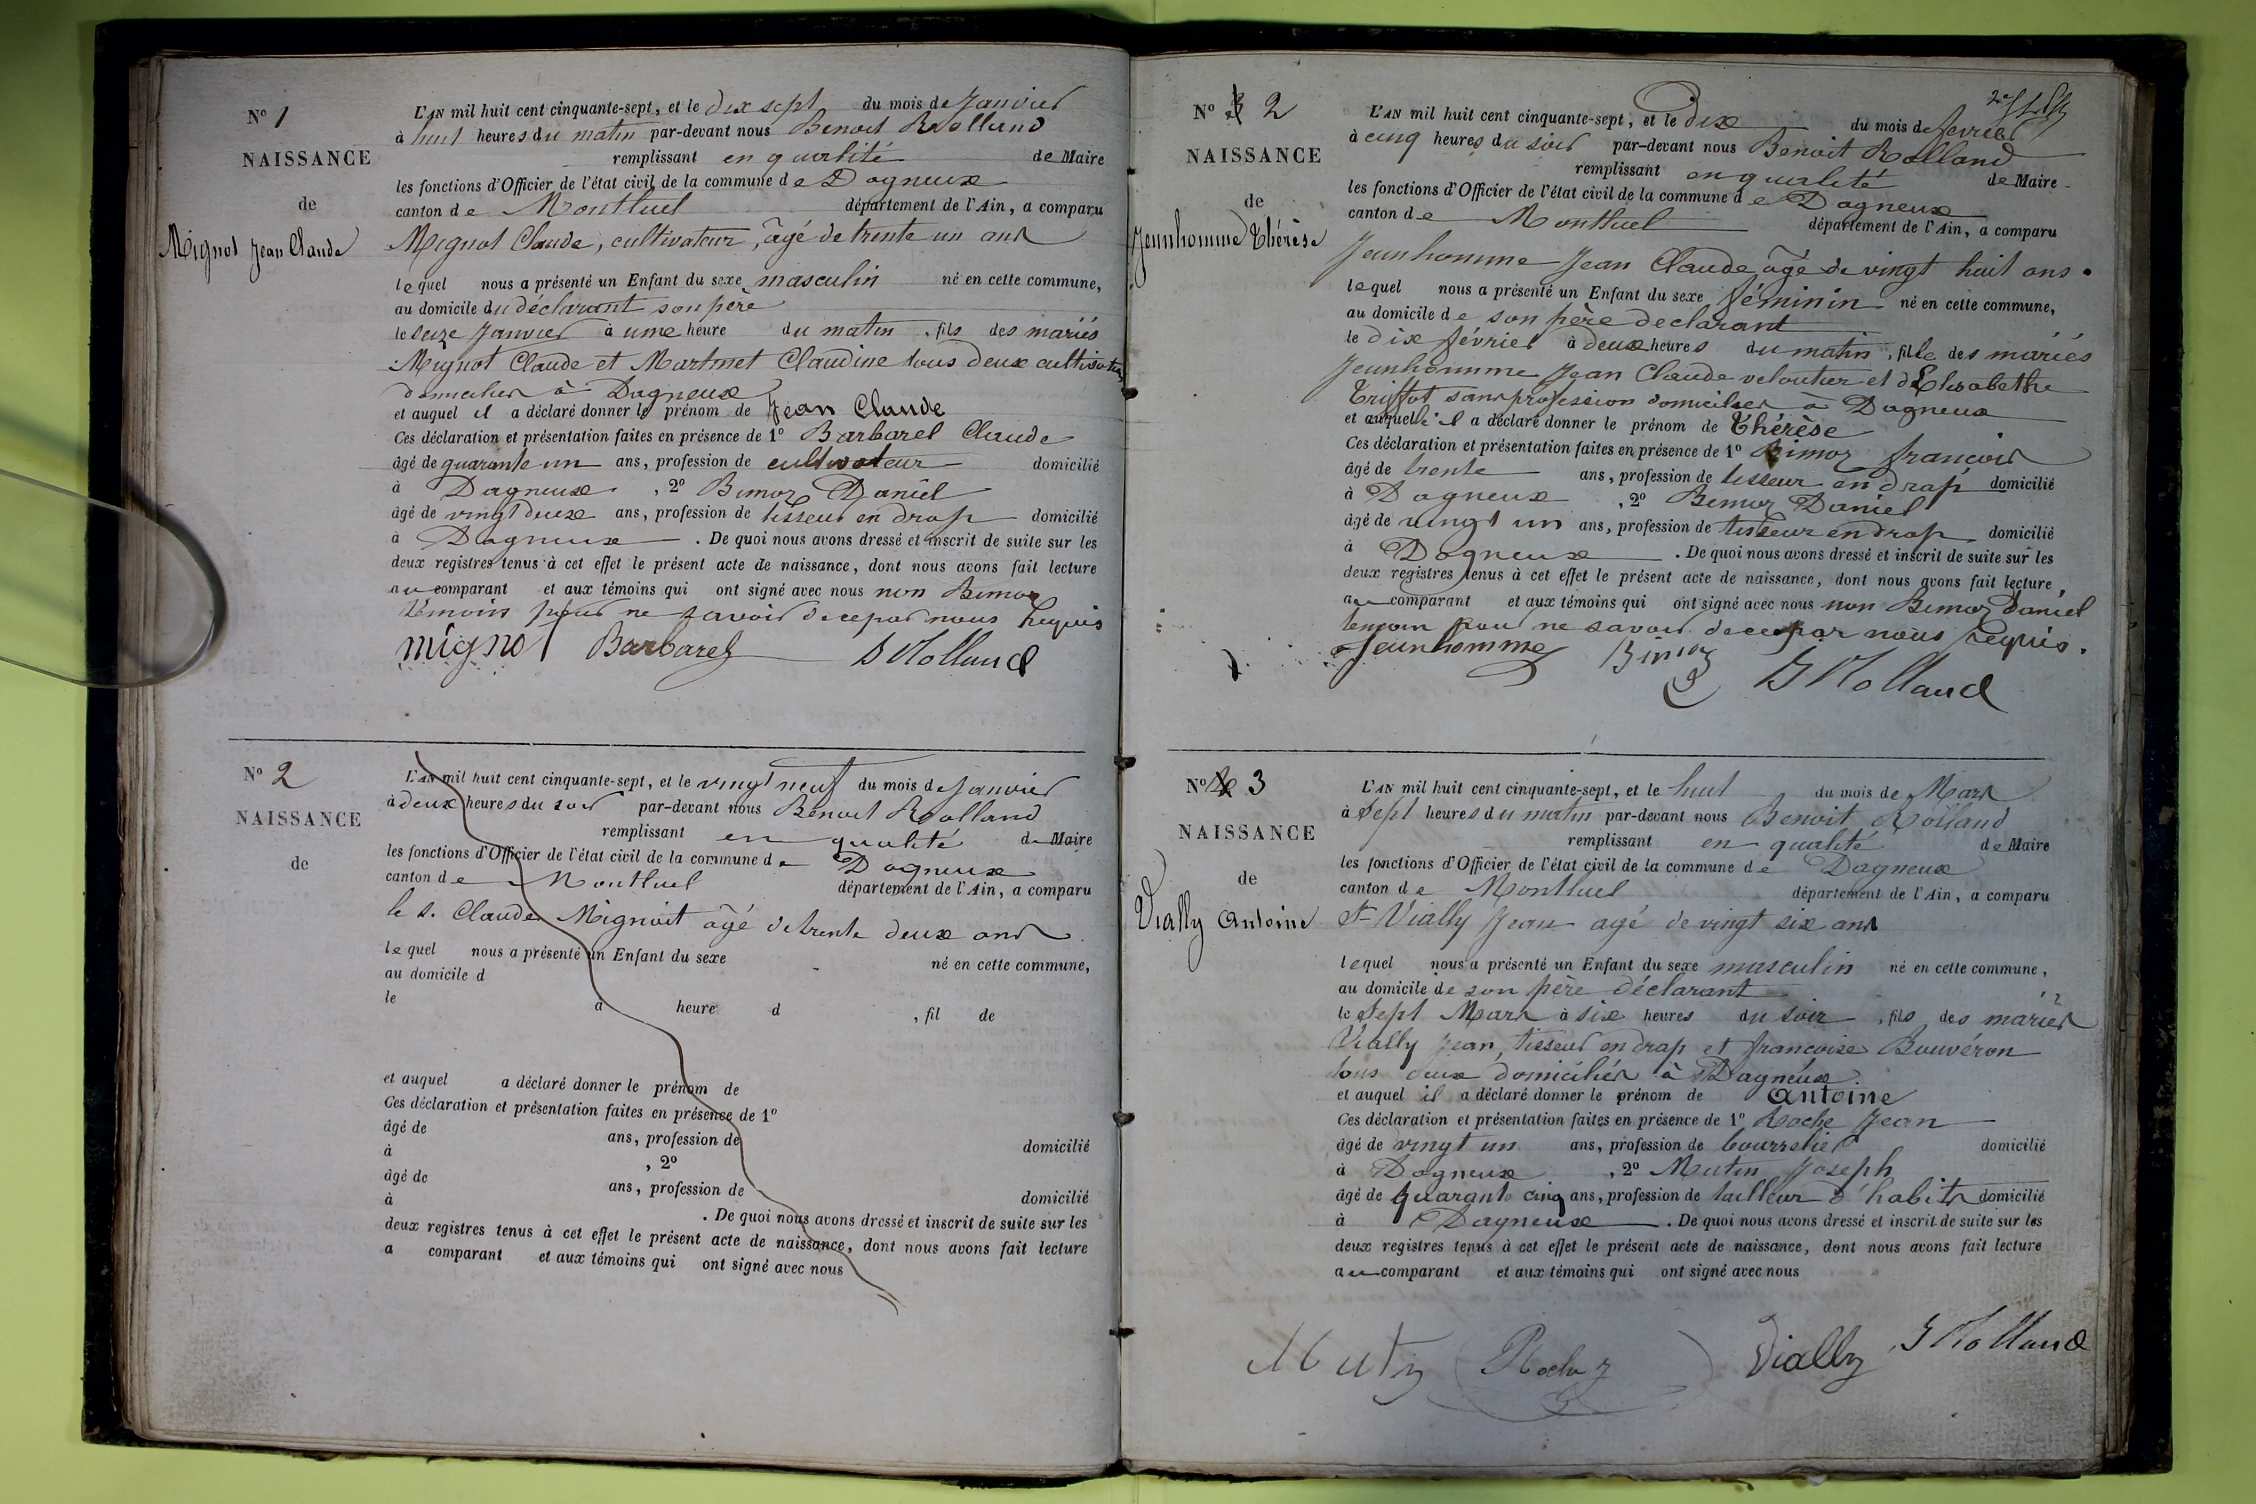 N° 1
NAISSANCE
de
Mignot Jean Claude
L'AN mil huit cent cinquante-sept, et le dix sept du mois de Janvier
à huit heures du matin par-devant nous Benoit Rolland
remplissant en qualité de Maire
les fonctions d'Officier de l'état civil de la commune de Dagneux
canton de Montluel département de l'Ain, a comparu
Mignot Claude, cultivateur, âgé de trente un ans
lequel nous a présenté un Enfant du sexe masculin né en cette commune,
au domicile du déclarant son père
le seize Janvier à une heure du matin, fils des mariés
Mignot Claude et Martinet Claudine tous deux cultivateurs
domiciliés à Dagneux
et auquel il a déclaré donner le prénom de Jean Claude
Ces déclaration et présentation faites en présence de 1° Barbarel Claude
âgé de quarante un ans, profession de cultivateur domicilié
à Dagneux, 2° Bimoz Daniel
âgé de vingt deux ans, profession de tisseur en drap domicilié
à Dagneux. De quoi nous avons dressé et inscrit de suite sur les
deux registres tenus à cet effet le présent acte de naissance, dont nous avons fait lecture
au comparant et aux témoins qui ont signé avec nous non Bimoz
témoins pour ne savoir de ce par nous requis
mignot Barbarel B Rolland
N° 2
NAISSANCE
de
L'AN mil huit cent cinquante-sept, et le vingt neuf du mois de Janvier
à deux heures du soir par-devant nous Benoit Rolland
remplissant en qualité de Maire
les fonctions d'Officier de l'état civil de la commune de Dagneux
canton de Montluel département de l'Ain, a comparu
le s. Claude Mignot âgé de trente deux ans
lequel nous a présenté un Enfant du sexe né en cette commune,
au domicile d
le à heure d , fil de
et auquel a déclaré donner le prénom de
Ces déclaration et présentation faites en présence de 1°
âgé de ans, profession de domicilié
à , 2°
âgé de ans, profession de domicilié
à . De quoi nous avons dressé et inscrit de suite sur les
deux registres tenus à cet effet le présent acte de naissance, dont nous avons fait lecture
a comparant et aux témoins qui ont signé avec nous
N° 2
NAISSANCE
de
Jeunhomme Thérèse
L'AN mil huit cent cinquante-sept, et le Dix du mois de fevrier
à cinq heures du soir par-devant nous Benoit Rolland
remplissant en qualité de Maire
les fonctions d'Officier de l'état civil de la commune de Dagneux
canton de Montluel département de l'Ain, a comparu
Jeunhomme Jean Claude âgé de vingt huit ans.
lequel nous a présenté un Enfant du sexe féminin né en cette commune,
au domicile de son père declarant
le dix février à deux heures du matin, fille des mariés
Jeunhomme Jean Claude veloutier et d'Elisabethe
Triffot sans profession domiciliés à Dagneux
et auquel il a déclaré donner le prénom de Thérèse
Ces déclaration et présentation faites en présence de 1° Bimoz françois
âgé de trente ans, profession de tisseur en drap domicilié
à Dagneux, 2° Bimoz Daniel
âgé de vingt un ans, profession de tisseur en drap domicilié
à Dagneux. De quoi nous avons dressé et inscrit de suite sur les
deux registres tenus à cet effet le présent acte de naissance, dont nous avons fait lecture
au comparant et aux témoins qui ont signé avec nous non Bimoz Daniel
temoin pour ne savoir de ce par nous requis.
Jeunhomme Bimoz B Rolland
N° 3
NAISSANCE
de
Vially Antoine
L'AN mil huit cent cinquante-sept, et le huit du mois de Mars
à sept heures du matin par-devant nous Benoit Rolland
remplissant en qualité de Maire
les fonctions d'Officier de l'état civil de la commune de Dagneux
canton de Montluel département de l'Ain, a comparu
Sr Vially Jean agé de vingt six ans
lequel nous a présenté un Enfant du sexe masculin né en cette commune,
au domicile de son père déclarant
le Sept Mars à six heures du soir, fils des mariés
Vially Jean, tisseur en drap et francoise Bouvéron
tous deux domiciliés à Dagneux.
et auquel il a déclaré donner le prénom de Antoine
Ces déclaration et présentation faites en présence de 1° Roche Jean
âgé de vingt un ans, profession de bourrelier domicilié
à Dagneux, 2° Mutin Joseph
âgé de quarante cinq ans, profession de tailleur d'habits domicilié
à Dagneux. De quoi nous avons dressé et inscrit de suite sur les
deux registres tenus à cet effet le présent acte de naissance, dont nous avons fait lecture
au comparant et aux témoins qui ont signé avec nous
Mutin Roche Vially B Rolland